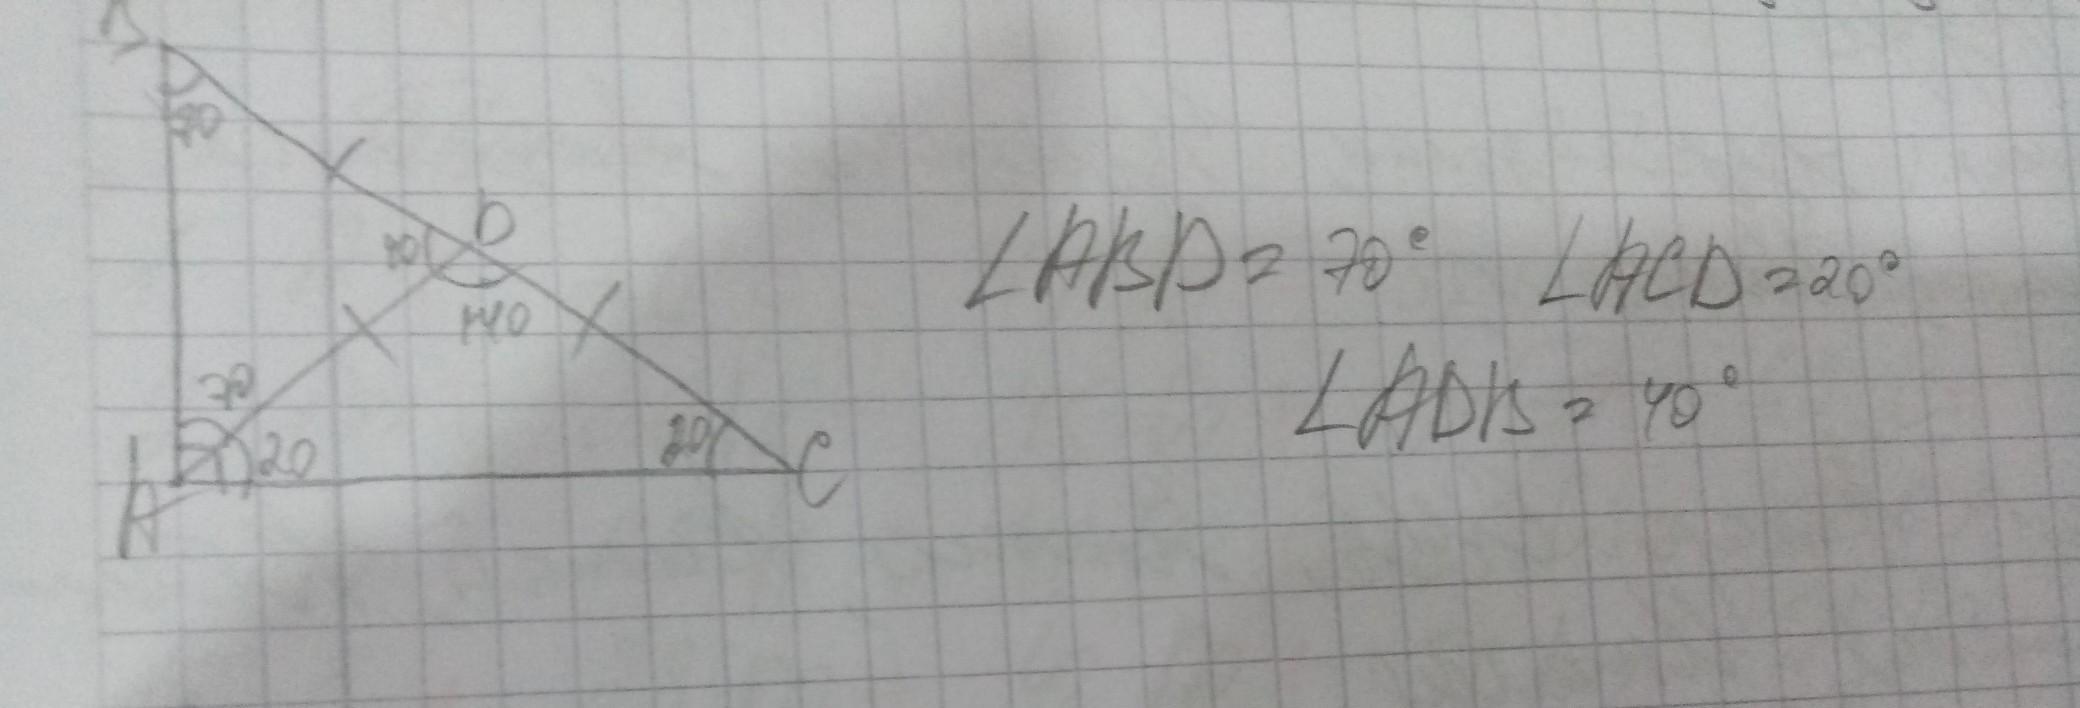 70
D
40
140
∠ABD = 70° ∠ACD = 20°
70
∠ADB = 40°
20
20
C
A